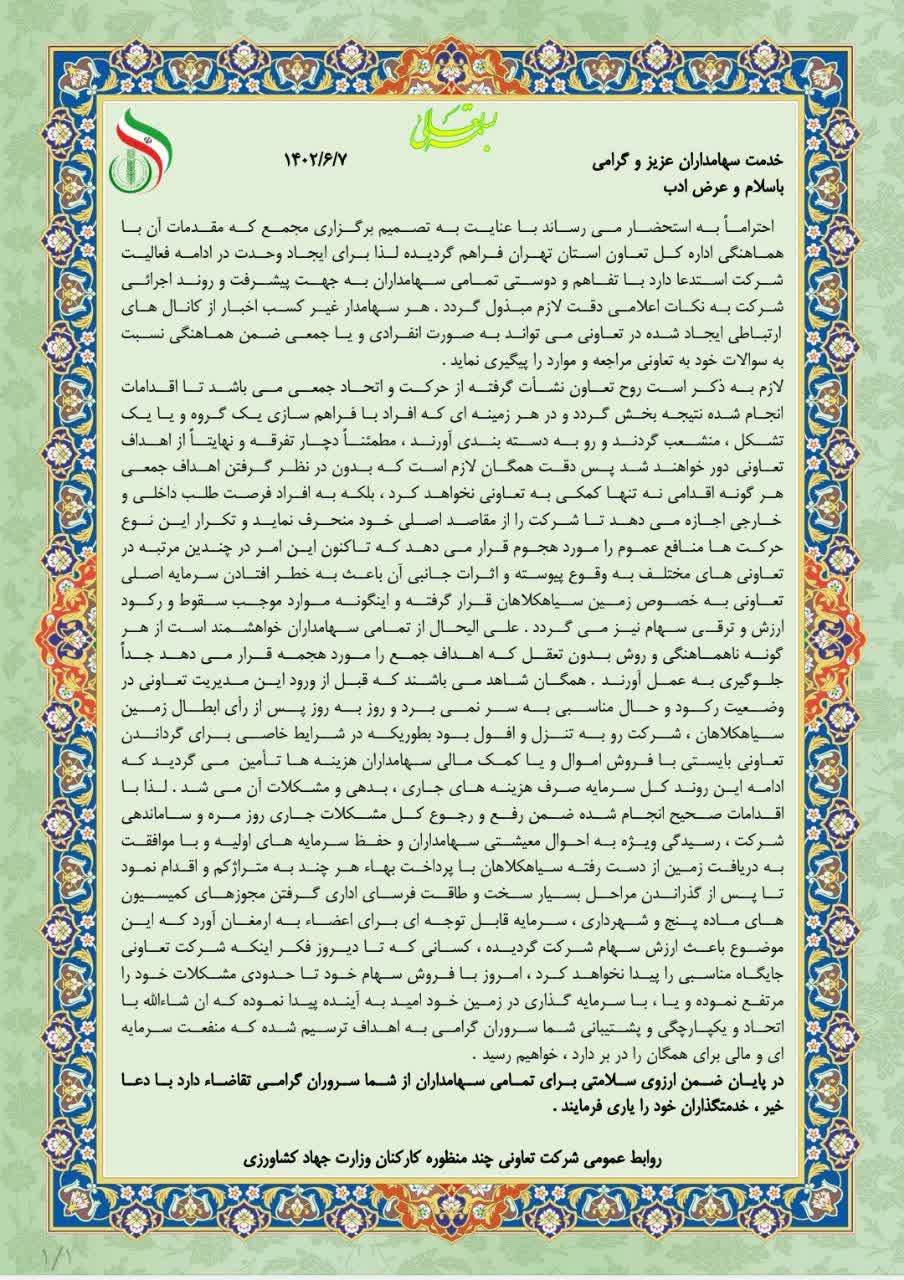 بسمه تعالی
خدمت سهامداران عزیز و گرامی ۱۴۰۲/۶/۷
باسلام و عرض ادب
احتراماً به استحضار می رساند با عنایت به تصمیم برگزاری مجمع که مقدمات آن با
هماهنگی اداره کل تعاون استان تهران فراهم گردیده لذا برای ایجاد وحدت در ادامه فعالیت
شرکت استدعا دارد با تفاهم و دوستی تمامی سهامداران به جهت پیشرفت و روند اجرائی
شرکت به نکات اعلامی دقت لازم مبذول گردد . هر سهامدار غیر کسب اخبار از کانال های
ارتباطی ایجاد شده در تعاونی می تواند به صورت انفرادی و یا جمعی ضمن هماهنگی نسبت
به سوالات خود به تعاونی مراجعه و موارد را پیگیری نماید .
لازم به ذکر است روح تعاون نشأت گرفته از حرکت و اتحاد جمعی می باشد تا اقدامات
انجام شده نتیجه بخش گردد و در هر زمینه ای که افراد با فراهم سازی یک گروه و یا یک
تشکل ، منشعب گردند و رو به دسته بندی آورند ، مطمئناً دچار تفرقه و نهایتاً از اهداف
تعاونی دور خواهند شد پس دقت همگان لازم است که بدون در نظر گرفتن اهداف جمعی
هر گونه اقدامی نه تنها کمکی به تعاونی نخواهد کرد ، بلکه به افراد فرصت طلب داخلی و
خارجی اجازه می دهد تا شرکت را از مقاصد اصلی خود منحرف نماید و تکرار این نوع
حرکت ها منافع عموم را مورد هجوم قرار می دهد که تاکنون این امر در چندین مرتبه در
تعاونی های مختلف به وقوع پیوسته و اثرات جانبی آن باعث به خطر افتادن سرمایه اصلی
تعاونی به خصوص زمین سیاهکلاهان قرار گرفته و اینگونه موارد موجب سقوط و رکود
ارزش و ترقی سهام نیز می گردد . علی الیحال از تمامی سهامداران خواهشمند است از هر
گونه ناهماهنگی و روش بدون تعقل که اهداف جمع را مورد هجمه قرار می دهد جداً
جلوگیری به عمل آورند . همگان شاهد می باشند که قبل از ورود این مدیریت تعاونی در
وضعیت رکود و حال مناسبی به سر نمی برد و روز به روز پس از رأی ابطال زمین
سیاهکلاهان ، شرکت رو به تنزل و افول بود بطوریکه در شرایط خاصی برای گرداندن
تعاونی بایستی با فروش اموال و یا کمک مالی سهامداران هزینه ها تأمین می گردید که
ادامه این روند کل سرمایه صرف هزینه های جاری ، بدهی و مشکلات آن می شد . لذا با
اقدامات صحیح انجام شده ضمن رفع و رجوع کل مشکلات جاری روز مره و ساماندهی
شرکت ، رسیدگی ویژه به احوال معیشتی سهامداران و حفظ سرمایه های اولیه و با موافقت
به دریافت زمین از دست رفته سیاهکلاهان با پرداخت بهاء هر چند به متراژکم و اقدام نمود
تا پس از گذراندن مراحل بسیار سخت و طاقت فرسای اداری گرفتن مجوزهای کمیسیون
های ماده پنج و شهرداری ، سرمایه قابل توجه ای برای اعضاء به ارمغان آورد که این
موضوع باعث ارزش سهام شرکت گردیده ، کسانی که تا دیروز فکر اینکه شرکت تعاونی
جایگاه مناسبی را پیدا نخواهد کرد ، امروز با فروش سهام خود تا حدودی مشکلات خود را
مرتفع نموده و یا ، با سرمایه گذاری در زمین خود امید به آینده پیدا نموده که ان شاءالله با
اتحاد و یکپارچگی و پشتیبانی شما سروران گرامی به اهداف ترسیم شده که منفعت سرمایه
ای و مالی برای همگان را در بر دارد ، خواهیم رسید .
در پایان ضمن ارزوی سلامتی برای تمامی سهامداران از شما سروران گرامی تقاضاء دارد با دعا
خیر ، خدمتگذاران خود را یاری فرمایند .
روابط عمومی شرکت تعاونی چند منظوره کارکنان وزارت جهاد کشاورزی
۱/۱